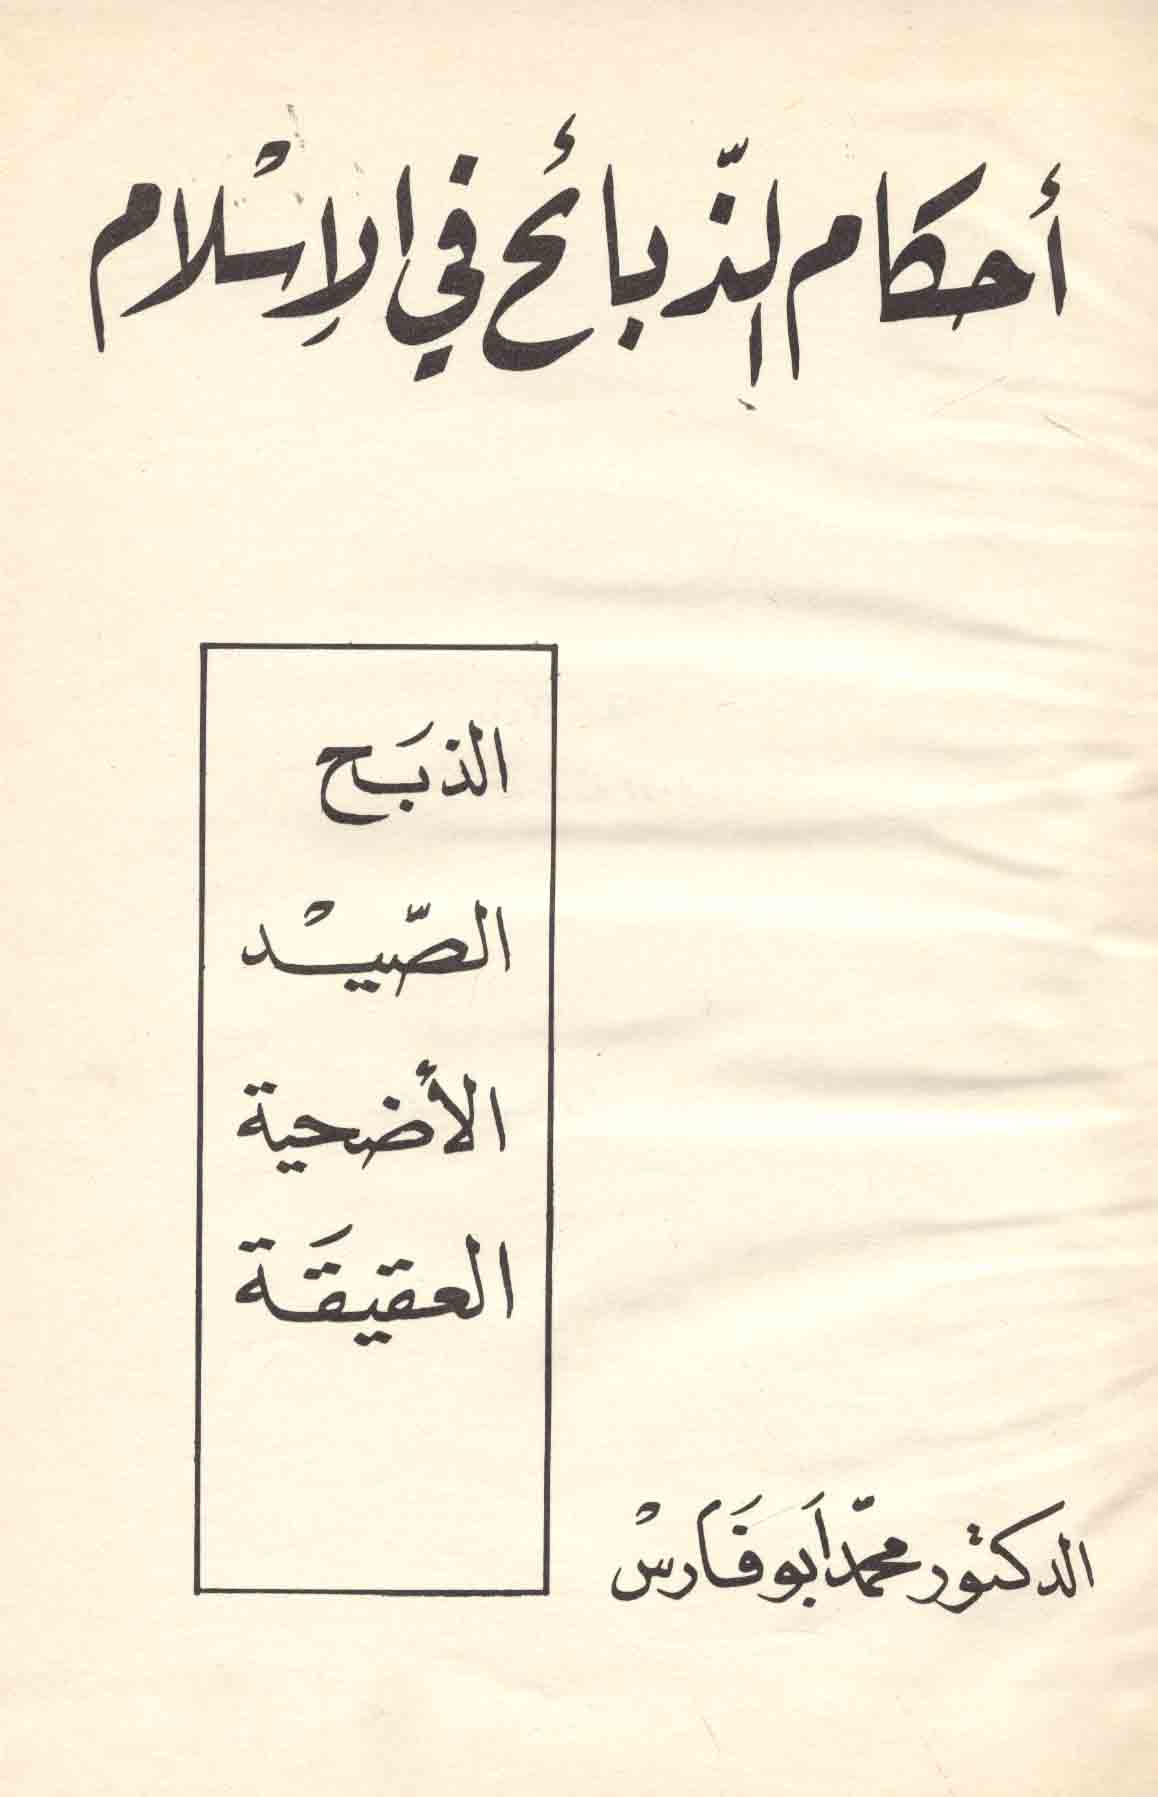 أحكام الذّبائح في الإسْلام
الذبَح
الصّيْد
الأضحية
العقيقَة
الدكتور محمّد أَبو فَارسْ